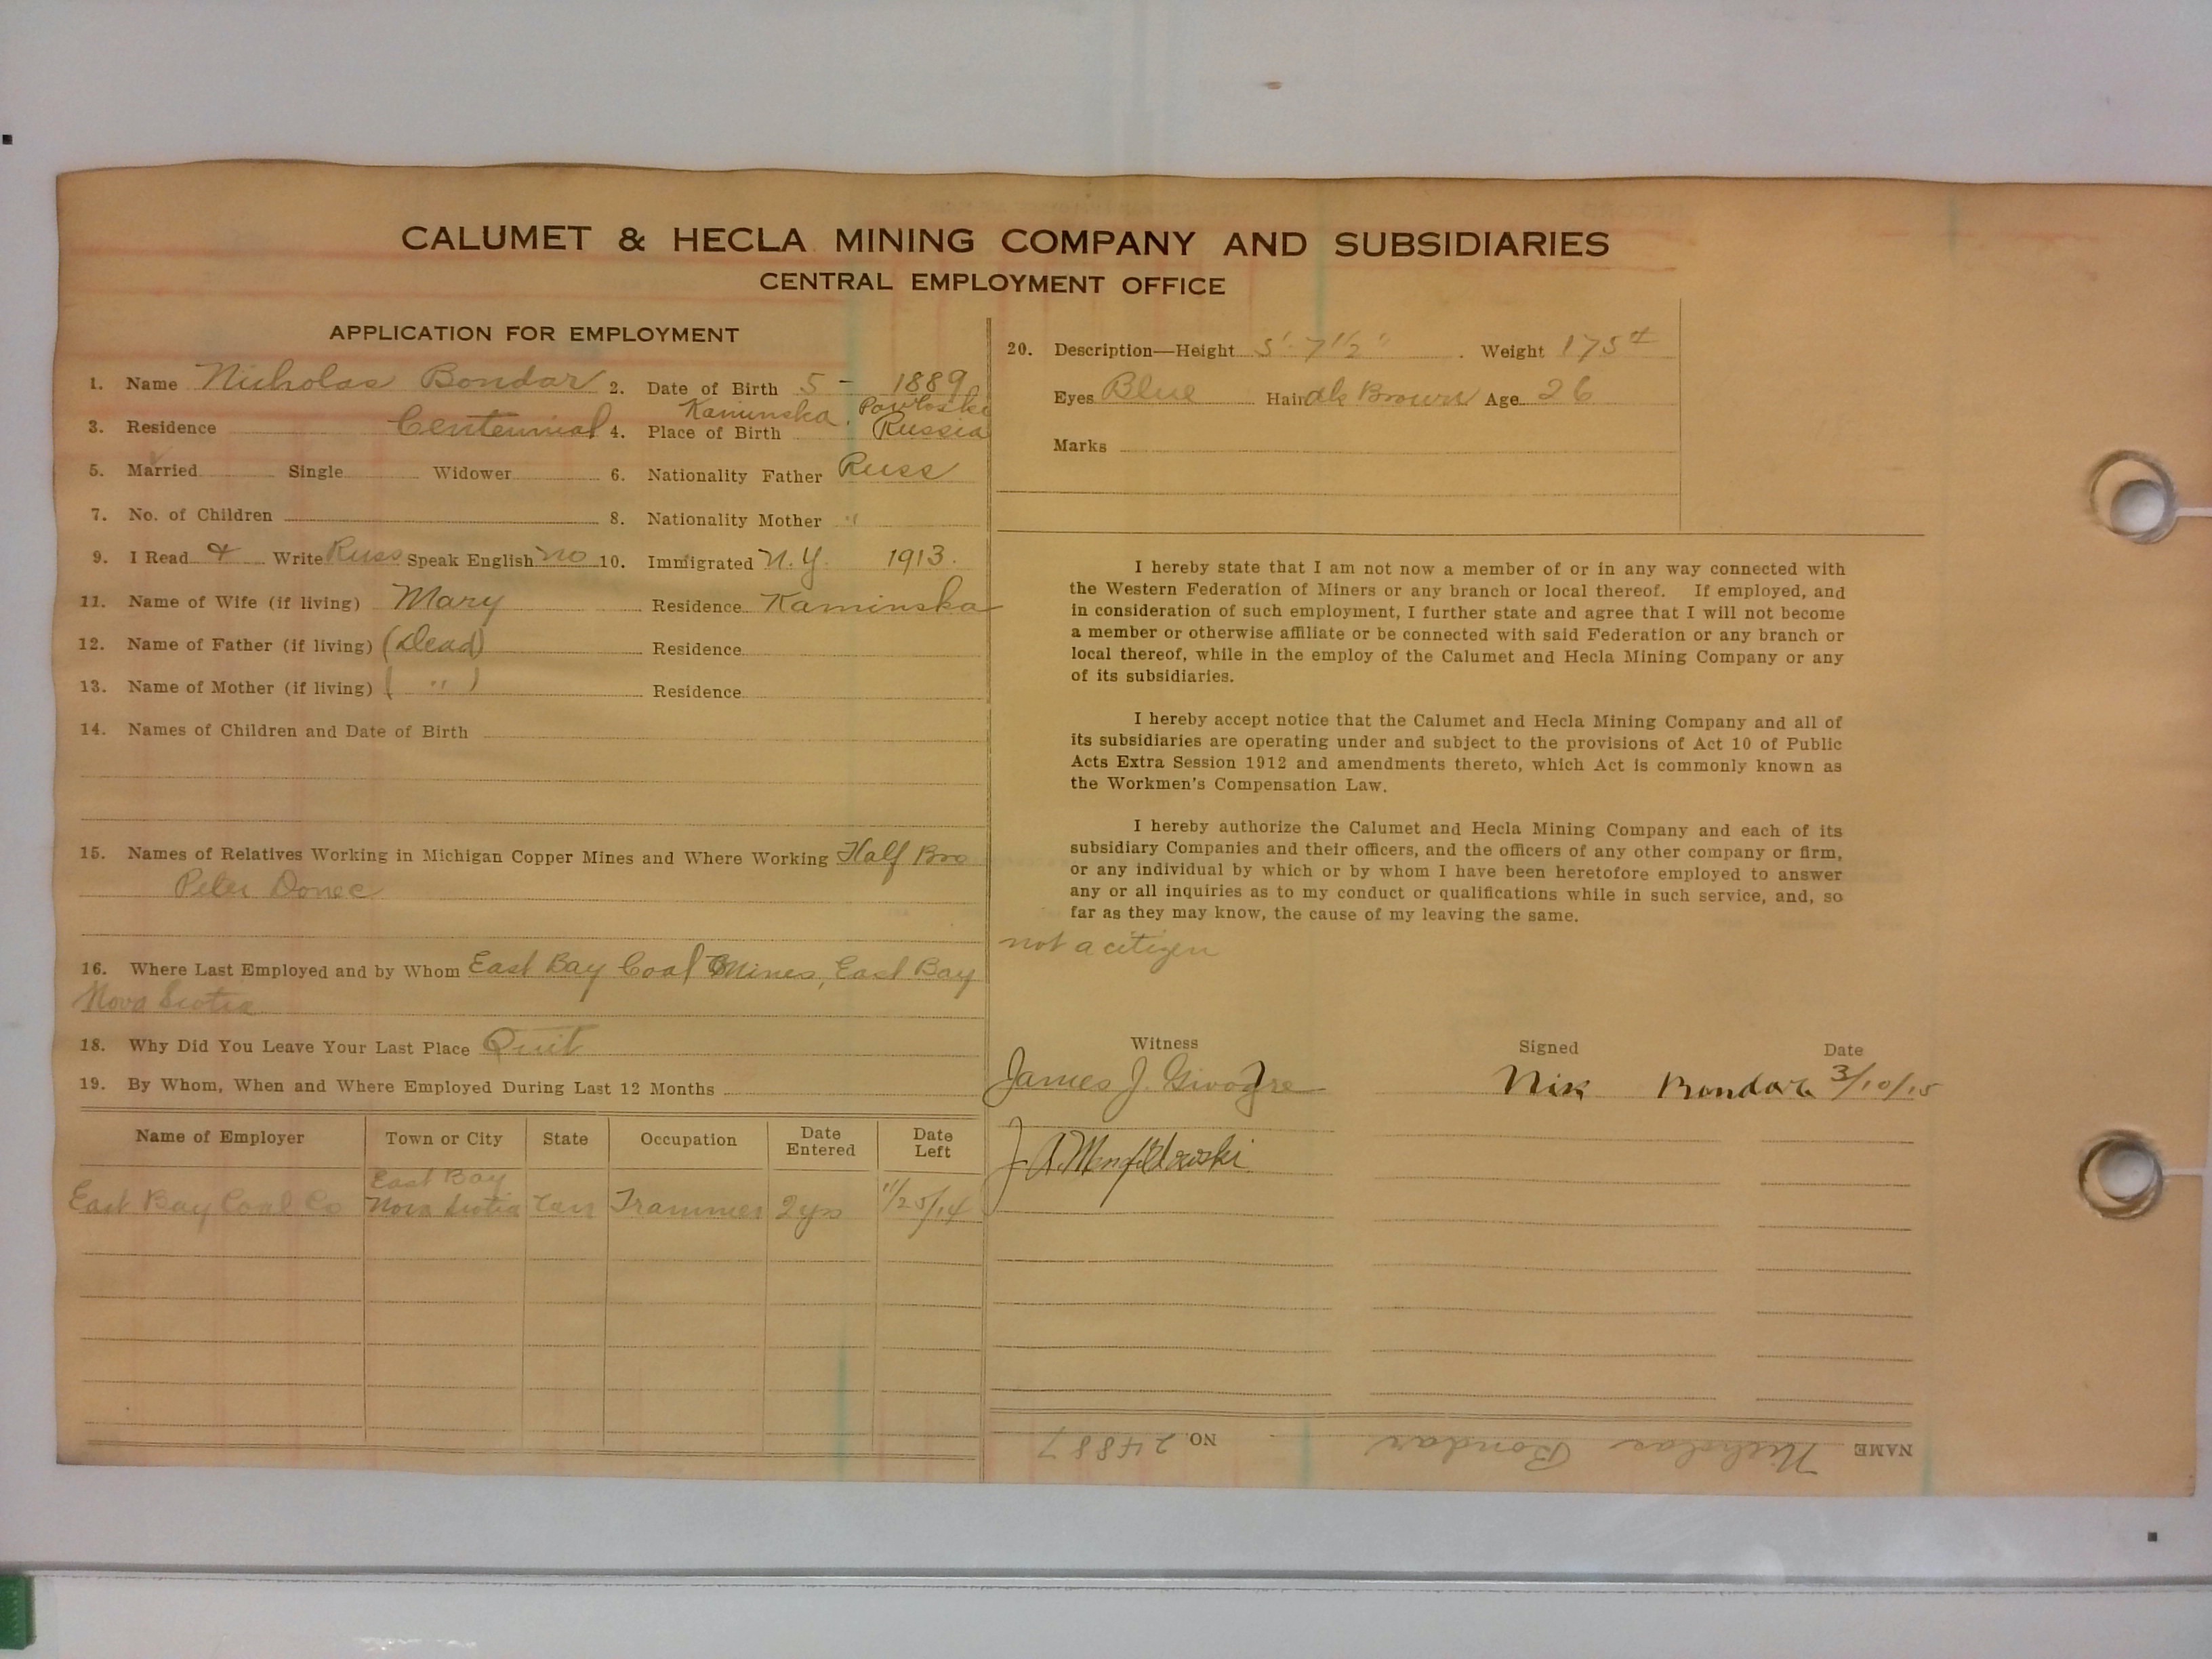 CALUMET & HECLA MINING COMPANY AND SUBSIDIARIES
CENTRAL EMPLOYMENT OFFICE
APPLICATION FOR EMPLOYMENT
1. Name Nicholas Bondar 2. Date of Birth 5 - 1889
Kaminska. Powloski
3. Residence Centennial 4. Place of Birth Russia
5. Married Single Widower 6. Nationality Father Russ
7. No. of Children 8. Nationality Mother "
9. I Read & Write Russ Speak English no 10. Immigrated N.Y. 1913.
11. Name of Wife (if living) Mary Residence Kaminska
12. Name of Father (if living) (Dead) Residence
13. Name of Mother (if living) ( " ) Residence
14. Names of Children and Date of Birth
15. Names of Relatives Working in Michigan Copper Mines and Where Working Half Bro
Peter Donec
16. Where Last Employed and by Whom East Bay Coal Mines, East Bay
Nova Scotia
18. Why Did You Leave Your Last Place Quit
19. By Whom, When and Where Employed During Last 12 Months
Name of Employer Town or City State Occupation Date Entered Date Left
East Bay
East Bay Coal Co Nova Scotia Can Trammer 2 yrs 11/25/14
20. Description—Height 5' 7 1/2" Weight 175#
Eyes Blue Hair dk Brown Age 26
Marks
I hereby state that I am not now a member of or in any way connected with
the Western Federation of Miners or any branch or local thereof. If employed, and
in consideration of such employment, I further state and agree that I will not become
a member or otherwise affiliate or be connected with said Federation or any branch or
local thereof, while in the employ of the Calumet and Hecla Mining Company or any
of its subsidiaries.
I hereby accept notice that the Calumet and Hecla Mining Company and all of
its subsidiaries are operating under and subject to the provisions of Act 10 of Public
Acts Extra Session 1912 and amendments thereto, which Act is commonly known as
the Workmen's Compensation Law.
I hereby authorize the Calumet and Hecla Mining Company and each of its
subsidiary Companies and their officers, and the officers of any other company or firm,
or any individual by which or by whom I have been heretofore employed to answer
any or all inquiries as to my conduct or qualifications while in such service, and, so
far as they may know, the cause of my leaving the same.
not a citizen
Witness Signed Date
James J. Nik Bondar 3/10/15
J. A.
NAME Nicholas Bondar NO. 24887